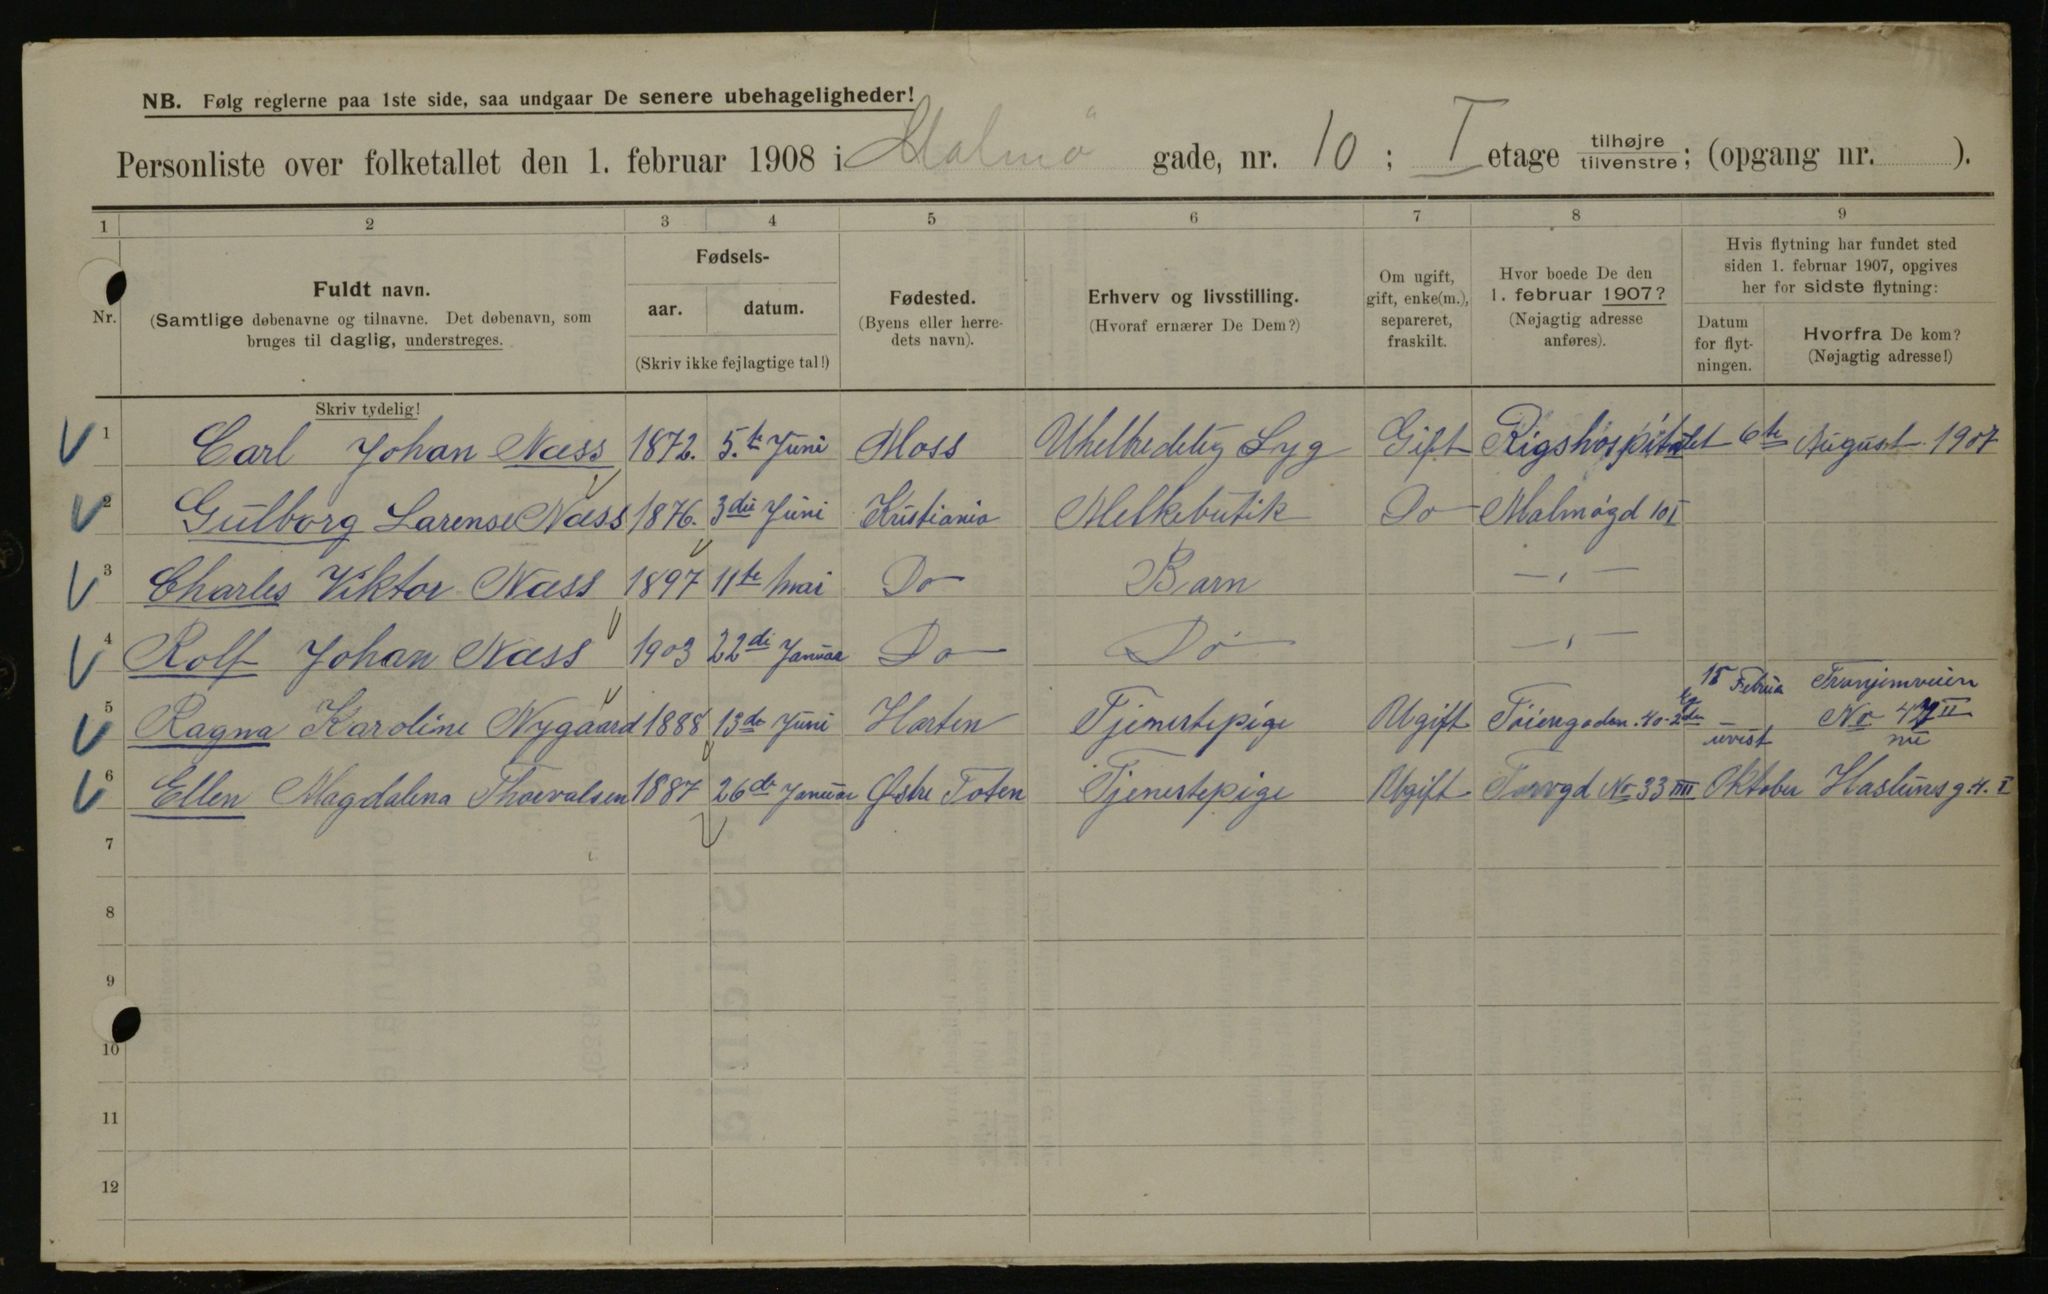 NB. Følg reglerne paa 1ste side, saa undgaar De senere ubehageligheder!
Personliste over folketallet den 1. februar 1908 i Malmö gade, nr. 10 ; I etage tilhøjre tilvenstre; (opgang nr. ).
1 2 3 4 5 6 7 8 9
Nr.
Fuldt navn.
(Samtlige døbenavne og tilnavne. Det døbenavn, som
bruges til daglig, understreges.
Skriv tydelig!
Fødsels-
aar. datum.
(Skriv ikke fejlagtige tal!)
Fødested.
(Byens eller herre-
dets navn).
Erhverv og livsstilling.
(Hvoraf ernærer De Dem?)
Om ugift,
gift, enke(m.),
separeret,
fraskilt.
Hvor boede De den
1. februar 1907?
(Nøjagtig adresse
anføres).
Hvis flytning har fundet sted
siden 1. februar 1907, opgives
her for sidste flytning:
Datum
for flyt-
ningen.
Hvorfra De kom?
(Nøjagtig adresse!)
1 Carl Johan Næss 1872. 5.te Juni Moss Uhelbredelig Syg Gift Rigshospitalet 6te August 1907
2 Gulborg Larense Næss 1876. 3die Juni Kristiania Melkebutik Do Malmøgd 10 I
3 Charles Viktor Næss 1897 11te mai Do Barn — „ —
4 Rolf Johan Næss 1903 22di Januar Do Do — „ —
5 Ragna Karoline Nygaard 1888 13de Juni Tjenestepige Ugift Töiengaden. 40 - 15 Februa No
6 Ellen Magdalena Thorvalsen 1887 26de Januar Østre Toten Tjenestepige Ugift Torvgd No 33 IIII Oktober Haslumsg. 4. I
7
8
9
10
11
12